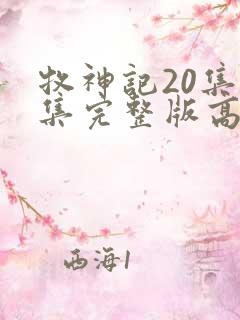 牧神記20集
集完整版高
西海1